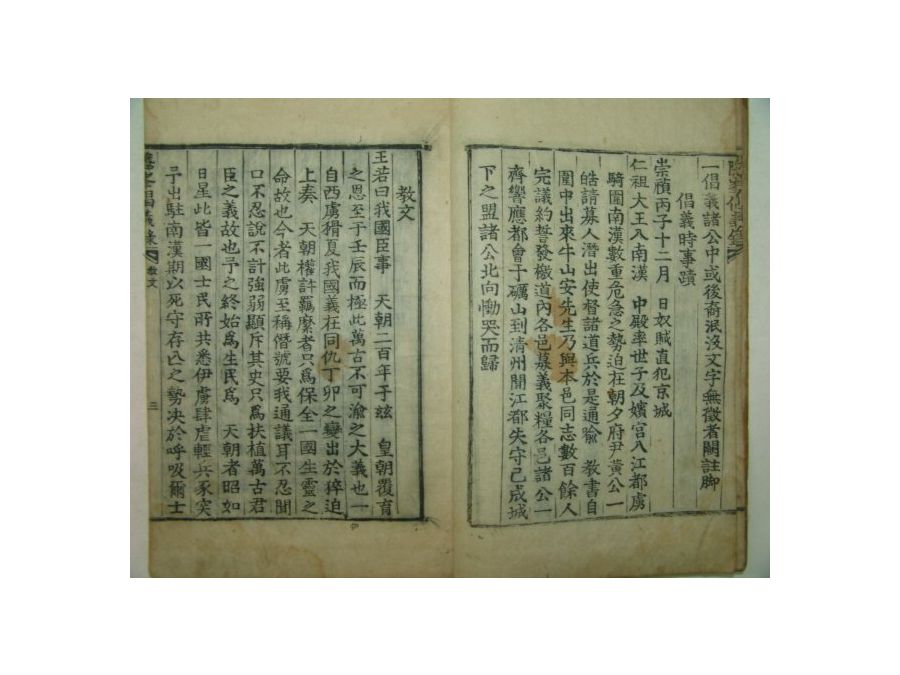 一倡義諸公中或後裔泯沒文字無徵者闕註脚
倡義時事蹟
崇禎丙子十二月 日奴賊直犯京城
仁祖大王入南漢 中殿率世子及嬪宮入江都虜
騎圍南漢數重危急之勢迫在朝夕府尹黃公一
皓請募人潛出使督諸道兵於是通喩 教書自
圍中出來牛山安先生乃與本邑同志數百餘人
完議約誓發檄道內各邑募義聚糧各邑諸公一
齊響應都會于礪山到淸州聞江都失守已成城
下之盟諸公北向慟哭而歸
教文
王若曰我國臣事 天朝二百年于玆 皇朝覆育
之恩至于壬辰而極此萬古不可渝之大義也一
自西虜猾夏我國義在同仇丁卯之變出於猝迫
上奏 天朝權許羈縻者只爲保全一國生靈之
命故也今者此虜至稱僭號要我通議耳不忍聞
口不忍說不計强弱顯斥其史只爲扶植萬古君
臣之義故也予之終始爲生民爲 天朝者昭如
日星此皆一國士民所共悉伊虜肆虐輕兵豕突
予出駐南漢期以死守存亡之勢決於呼吸爾士
倡義錄 教文 三